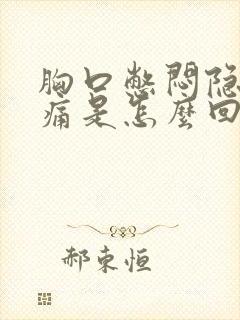 胸口憋悶隐
痛是怎麼回
郝東恒